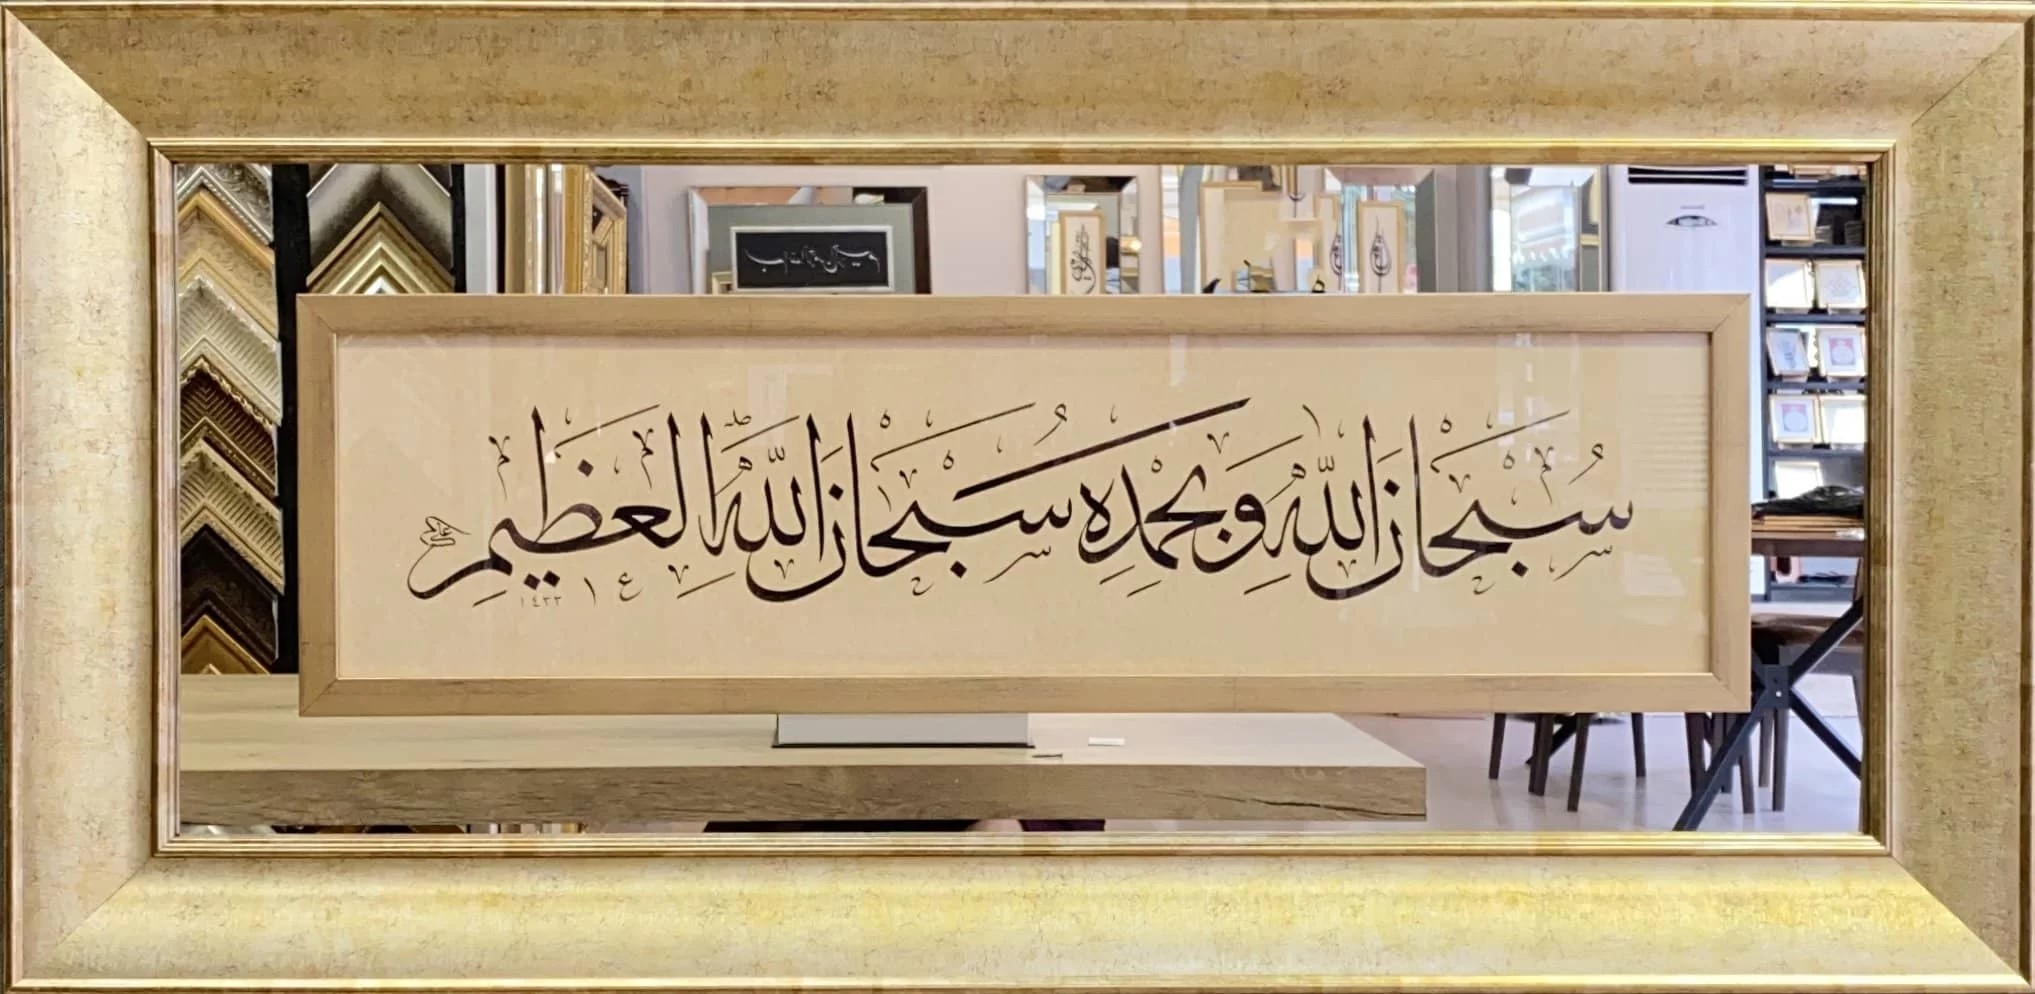 سُبْحَانَ اللّٰهِ وَبِحَمْدِهِ سُبْحَانَ اللّٰهِ الْعَظِيمِ
علي
١٤٣٣